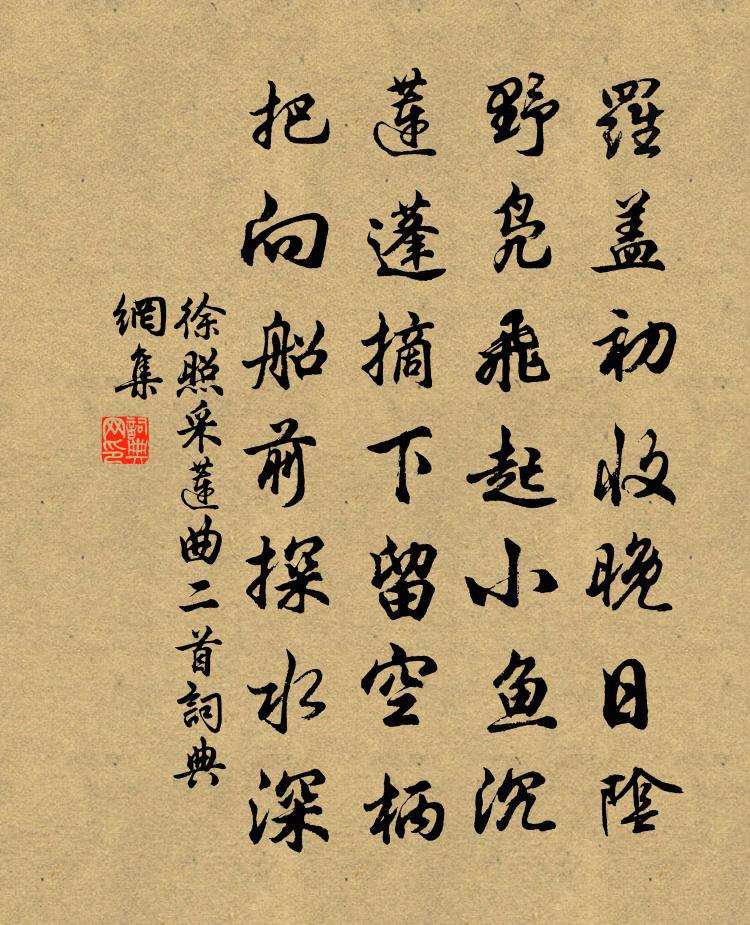 羅蓋初收晚日陰
野鳧飛起小魚沉
蓮蓬摘下留空柄
把向船前探水深
徐照采蓮曲二首詞典
網集
詞典
网印